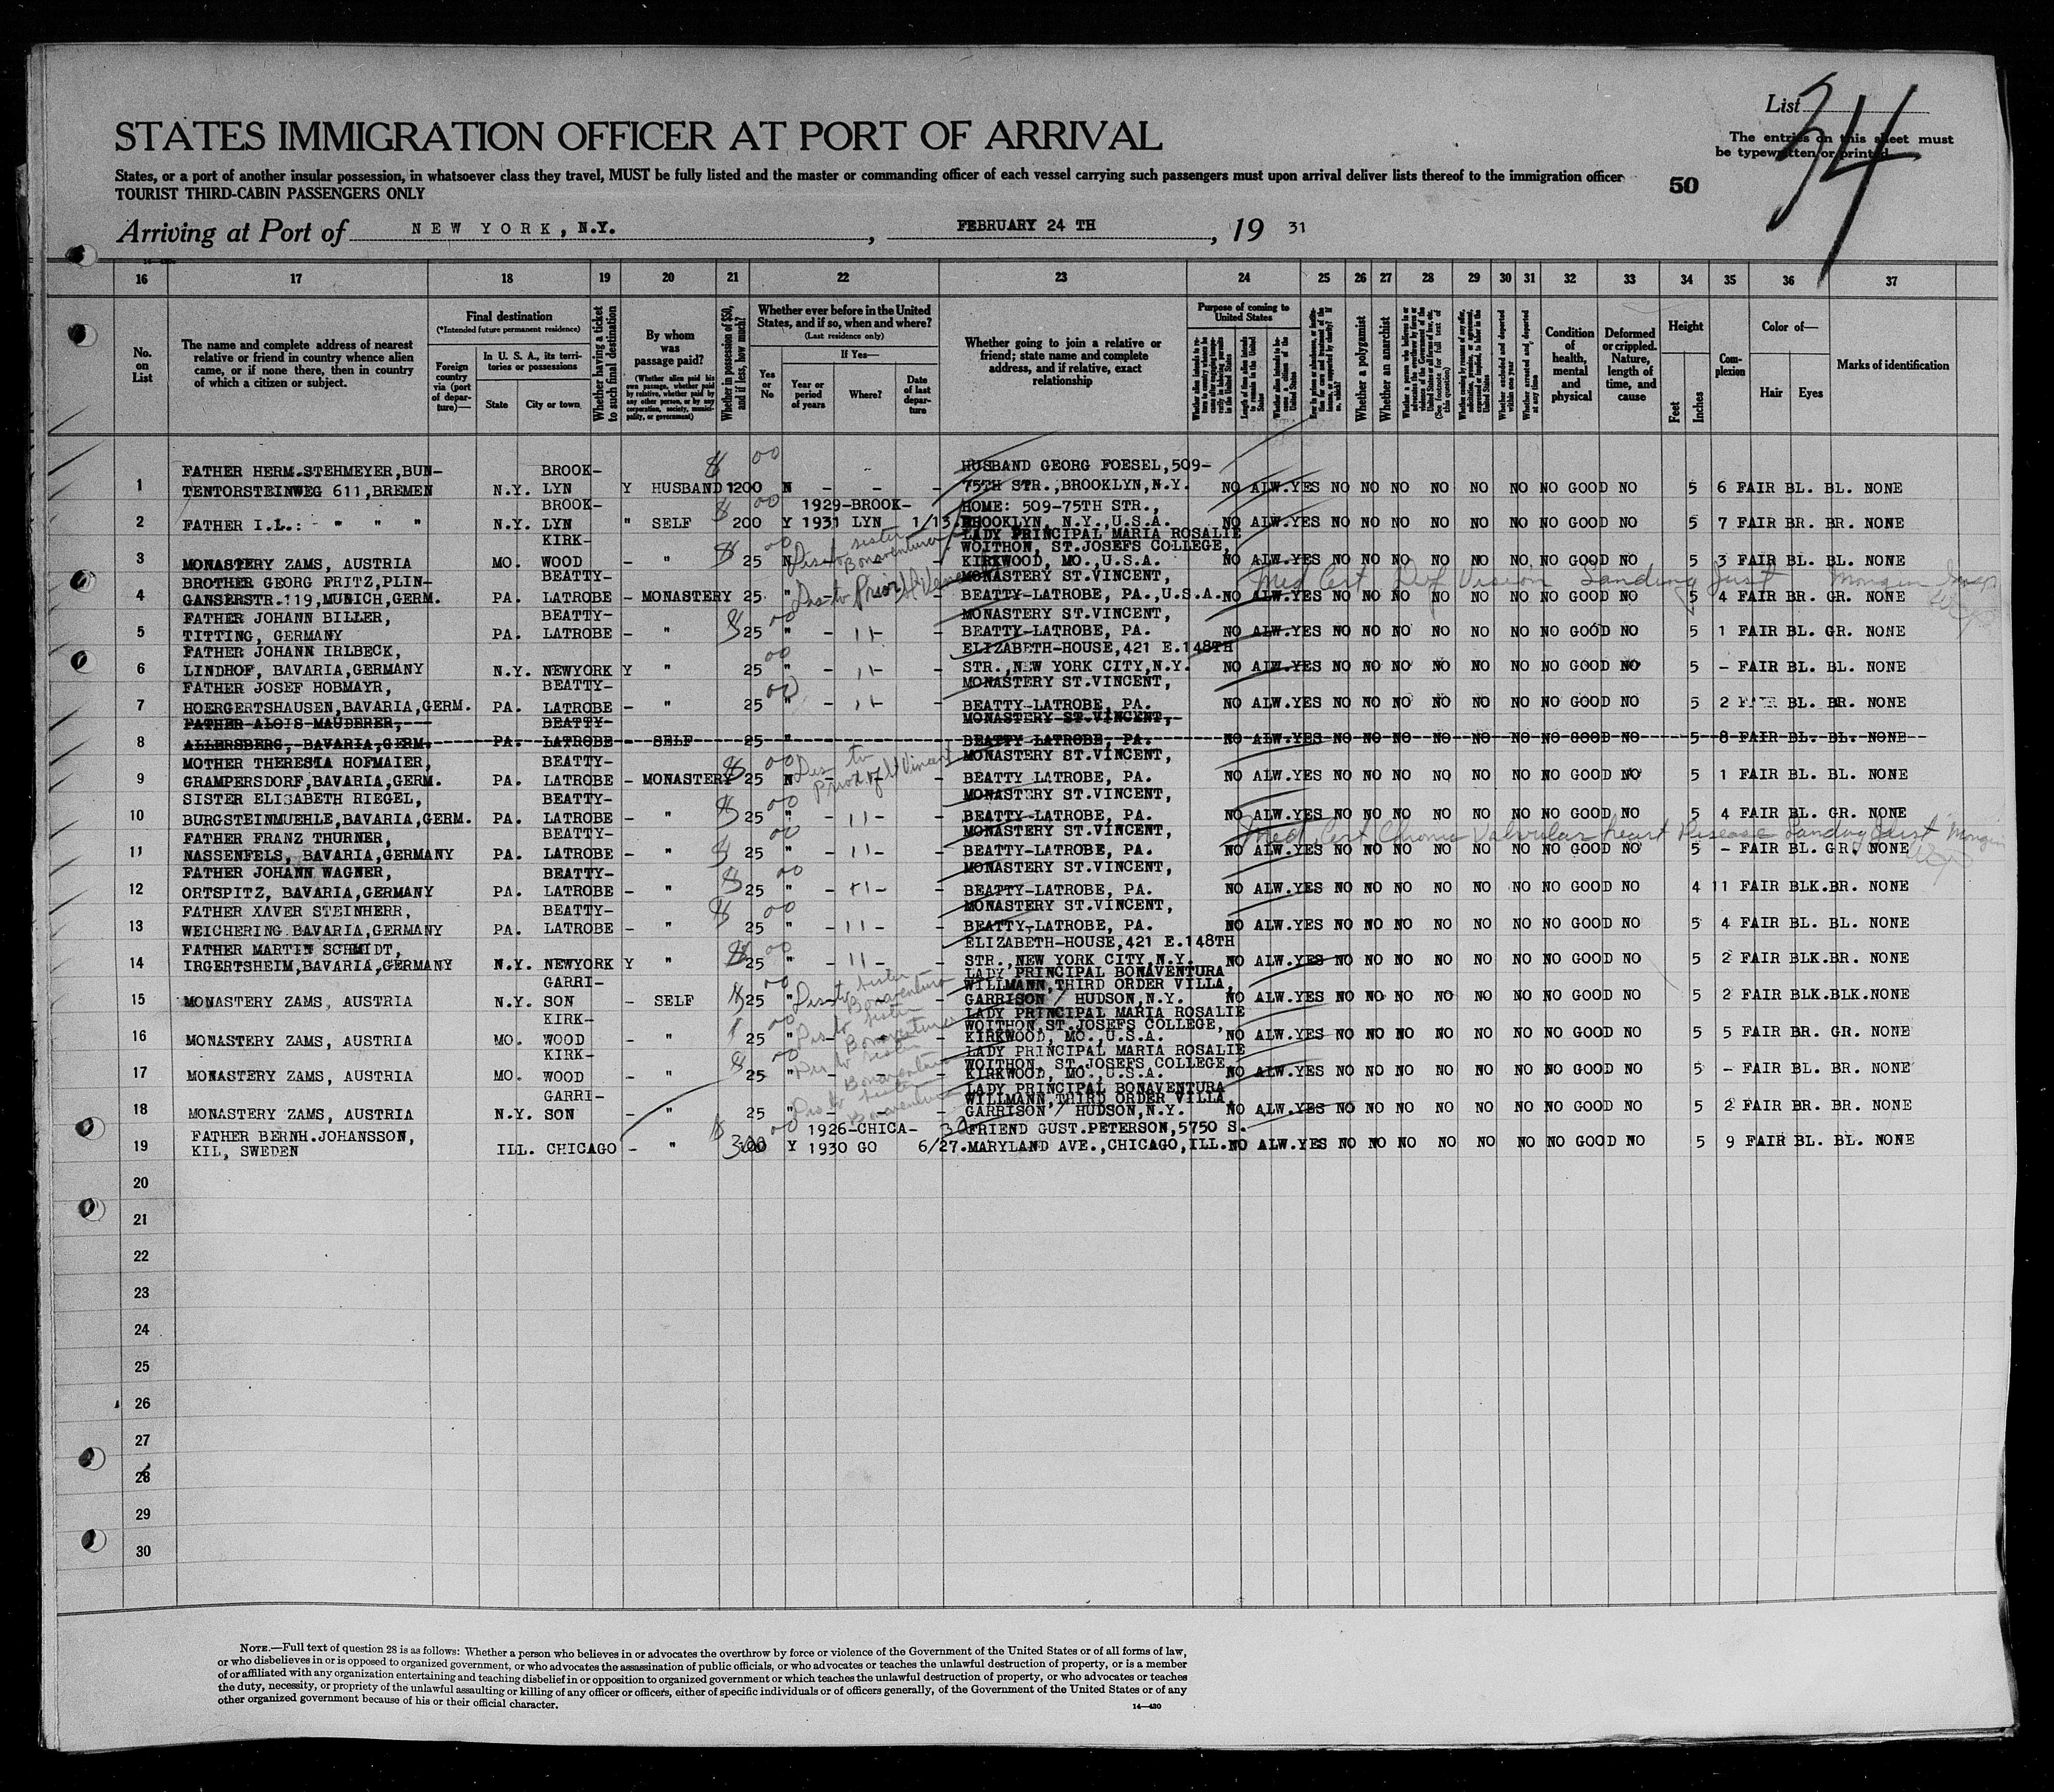 List 34
STATES IMMIGRATION OFFICER AT PORT OF ARRIVAL
The entries on this sheet must
be typewritten or printed.
States, or a port of another insular possession, in whatsoever class they travel, MUST be fully listed and the master or commanding officer of each vessel carrying such passengers must upon arrival deliver lists thereof to the immigration officer
TOURIST THIRD-CABIN PASSENGERS ONLY
50
Arriving at Port of NEW YORK, N.Y., FEBRUARY 24 TH, 19 31
16 17 18 19 20 21 22 23 24 25 26 27 28 29 30 31 32 33 34 35 36 37
No. on List
The name and complete address of nearest relative or friend in country whence alien came, or if none there, then in country of which a citizen or subject.
Final destination
(*Intended future permanent residence)
Foreign country via (port of departure)—
In U. S. A., its territories or possessions
State
City or town
Whether having a ticket to such final destination
By whom was passage paid?
(Whether alien paid his own passage, whether paid by relative, whether paid by any other person, or by any corporation, society, municipality, or government)
Whether in possession of $50, and if less, how much?
Whether ever before in the United States, and if so, when and where?
(Last residence only)
If Yes—
Yes or No
Year or period of years
Where?
Date of last departure
Whether going to join a relative or friend; state name and complete address, and if relative, exact relationship
Purpose of coming to United States
Length of time alien intends to remain in the United States
Whether alien intends to become a citizen of the United States
Whether a polygamist
Whether an anarchist
(See footnote for full text of this question)
Whether excluded and deported within one year
Whether arrested and deported at any time
Condition of health, mental and physical
Deformed or crippled. Nature, length of time, and cause
Height
Feet
Inches
Complexion
Color of—
Hair
Eyes
Marks of identification
FATHER HERM.STEHMEYER,BUN- BROOK- $ 00 HUSBAND GEORG FOESEL,509-
1 TENTORSTEINWEG 611,BREMEN N.Y. LYN Y HUSBAND 1200 N - - - 75TH STR.,BROOKLYN,N.Y. NO ALW.YES NO NO NO NO NO NO NO GOOD NO 5 6 FAIR BL. BL. NONE
BROOK- $ 00 1929-BROOK- HOME: 509-75TH STR.,
2 FATHER I.L.: - " " " N.Y. LYN " SELF 200 Y 1931 LYN 1/13. BROOKLYN, N.Y.,U.S.A. NO ALW.YES NO NO NO NO NO NO NO GOOD NO 5 7 FAIR BR. BR. NONE
KIRK- LADY PRINCIPAL MARIA ROSALIE
$ 00 Dis to sister Bonaventura WOITHON, ST.JOSEFS COLLEGE,
3 MONASTERY ZAMS, AUSTRIA MO. WOOD - " 25 N KIRKWOOD, MO.,U.S.A. NO ALW.YES NO NO NO NO NO NO NO GOOD NO 5 3 FAIR BL. BL. NONE
BROTHER GEORG FRITZ,PLIN- BEATTY- Dis to Prior MONASTERY ST.VINCENT, Med Cert Def Vision Landing Just
4 GANSERSTR.119,MUNICH,GERM. PA. LATROBE - MONASTERY 25 " - BEATTY-LATROBE, PA.,U.S.A. NO ALW.YES NO NO NO NO NO NO NO GOOD NO 5 4 FAIR BR. GR. NONE
FATHER JOHANN BILLER, BEATTY- 00 MONASTERY ST.VINCENT,
5 TITTING, GERMANY PA. LATROBE - " $ 25 " - 11 - - BEATTY-LATROBE, PA. NO ALW.YES NO NO NO NO NO NO NO GOOD NO 5 1 FAIR BL. GR. NONE
FATHER JOHANN IRLBECK, 00 ELIZABETH-HOUSE,421 E.148TH
6 LINDHOF, BAVARIA,GERMANY N.Y. NEWYORK Y " 25 " - 11 - - STR.,NEW YORK CITY,N.Y. NO ALW.YES NO NO NO NO NO NO NO GOOD NO 5 - FAIR BL. BL. NONE
FATHER JOSEF HOBMAYR, BEATTY- 00 MONASTERY ST.VINCENT,
7 HOERGERTSHAUSEN,BAVARIA,GERM. PA. LATROBE - " 25 " - 11 - - BEATTY-LATROBE, PA. NO ALW.YES NO NO NO NO NO NO NO GOOD NO 5 2 FAIR BL. BR. NONE
FATHER ALOIS MAUDERER, BEATTY- MONASTERY ST.VINCENT,
8 ALLERSBERG, BAVARIA,GERM. PA. LATROBE - SELF 25 " BEATTY LATROBE, PA. NO ALW.YES NO NO NO NO NO NO NO GOOD NO 5 8 FAIR BL. BL. NONE
MOTHER THERESIA HOFMAIER, BEATTY- $ 00 Dis to Prior of St Vincent MONASTERY ST.VINCENT,
9 GRAMPERSDORF,BAVARIA,GERM. PA. LATROBE - MONASTERY 25 N BEATTY LATROBE, PA. NO ALW.YES NO NO NO NO NO NO NO GOOD NO 5 1 FAIR BL. BL. NONE
SISTER ELISABETH RIEGEL, BEATTY- $ 00 MONASTERY ST.VINCENT,
10 BURGSTEINMUEHLE,BAVARIA,GERM. PA. LATROBE - " 25 " - 11 - - BEATTY-LATROBE, PA. NO ALW.YES NO NO NO NO NO NO NO GOOD NO 5 4 FAIR BL. GR. NONE
FATHER FRANZ THURNER, BEATTY- 00 MONASTERY ST.VINCENT, Med Cert Chronic Valvular heart Disease Landing Just
11 NASSENFELS, BAVARIA,GERMANY PA. LATROBE - " $ 25 " - 11 - - BEATTY-LATROBE, PA. NO ALW.YES NO NO NO NO NO NO NO GOOD NO 5 - FAIR BL. GR. NONE
FATHER JOHANN WAGNER, BEATTY- $ 00 MONASTERY ST.VINCENT,
12 ORTSPITZ, BAVARIA,GERMANY PA. LATROBE - " 25 " - 11 - - BEATTY-LATROBE, PA. NO ALW.YES NO NO NO NO NO NO NO GOOD NO 4 11 FAIR BLK.BR. NONE
FATHER XAVER STEINHERR, BEATTY- $ 00 MONASTERY ST.VINCENT,
13 WEICHERING BAVARIA,GERMANY PA. LATROBE - " 25 " - 11 - - BEATTY-LATROBE, PA. NO ALW.YES NO NO NO NO NO NO NO GOOD NO 5 4 FAIR BL. BL. NONE
FATHER MARTIN SCHMIDT, $ 00 ELIZABETH-HOUSE,421 E.148TH
14 IRGERTSHEIM,BAVARIA,GERMANY N.Y. NEWYORK Y " 25 " - 11 - - STR.,NEW YORK CITY,N.Y. NO ALW.YES NO NO NO NO NO NO NO GOOD NO 5 2 FAIR BLK.BR. NONE
GARRI- 00 Dis to Sister Bonaventura LADY PRINCIPAL BONAVENTURA
WILLMANN,THIRD ORDER VILLA,
15 MONASTERY ZAMS, AUSTRIA N.Y. SON - SELF $ 25 " - - - GARRISON / HUDSON,N.Y. NO ALW.YES NO NO NO NO NO NO NO GOOD NO 5 2 FAIR BLK.BLK.NONE
KIRK- 00 Dis to Sister Bonaventura LADY PRINCIPAL MARIA ROSALIE
WOITHON,ST.JOSEFS COLLEGE,
16 MONASTERY ZAMS, AUSTRIA MO. WOOD - " 25 " - - - KIRKWOOD, MO.,U.S.A. NO ALW.YES NO NO NO NO NO NO NO GOOD NO 5 5 FAIR BR. GR. NONE
KIRK- $ 00 Dis to Sister Bonaventura LADY PRINCIPAL MARIA ROSALIE
WOITHON, ST.JOSEFS COLLEGE,
17 MONASTERY ZAMS, AUSTRIA MO. WOOD - " 25 " - - KIRKWOOD, MO.,U.S.A. NO ALW.YES NO NO NO NO NO NO NO GOOD NO 5 - FAIR BL. BR. NONE
GARRI- Dis to Sister Bonaventura LADY PRINCIPAL BONAVENTURA
WILLMANN,THIRD ORDER VILLA,
18 MONASTERY ZAMS, AUSTRIA N.Y. SON - " 25 " - - GARRISON / HUDSON,N.Y. NO ALW.YES NO NO NO NO NO NO NO GOOD NO 5 2 FAIR BR. BR. NONE
FATHER BERNH.JOHANSSON, $ 00 1926-CHICA- 30 FRIEND GUST.PETERSON,5750 S.
19 KIL, SWEDEN ILL. CHICAGO - " 300 Y 1930 GO 6/27.MARYLAND AVE.,CHICAGO,ILL.NO ALW.YES NO NO NO NO NO NO NO GOOD NO 5 9 FAIR BL. BL. NONE
20
21
22
23
24
25
26
27
28
29
30
NOTE.—Full text of question 28 is as follows: Whether a person who believes in or advocates the overthrow by force or violence of the Government of the United States or of all forms of law,
or who disbelieves in or is opposed to organized government, or who advocates the assassination of public officials, or who advocates or teaches the unlawful destruction of property, or is a member
of or affiliated with any organization entertaining and teaching disbelief in or opposition to organized government or which teaches the unlawful destruction of property, or who advocates or teaches
the duty, necessity, or propriety of the unlawful assaulting or killing of any officer or officers, either of specific individuals or of officers generally, of the Government of the United States or of any
other organized government because of his or their official character.
14—430